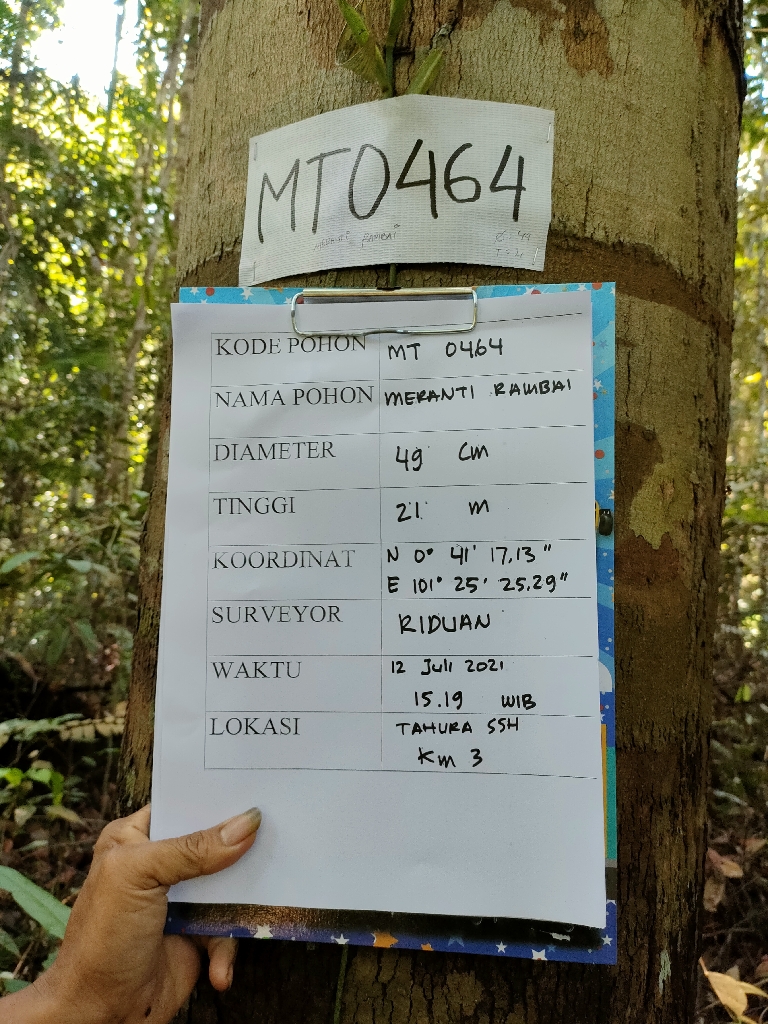 MT0464
MERANTI RAMBAI
KODE POHON MT 0464
NAMA POHON MERANTI RAMBAI
DIAMETER 49 Cm
TINGGI 21 m
KOORDINAT N 0° 41' 17,13"
E 101° 25' 25,29"
SURVEYOR RIDUAN
WAKTU 12 Juli 2021
15.19 WIB
LOKASI TAHURA SSH
Km 3